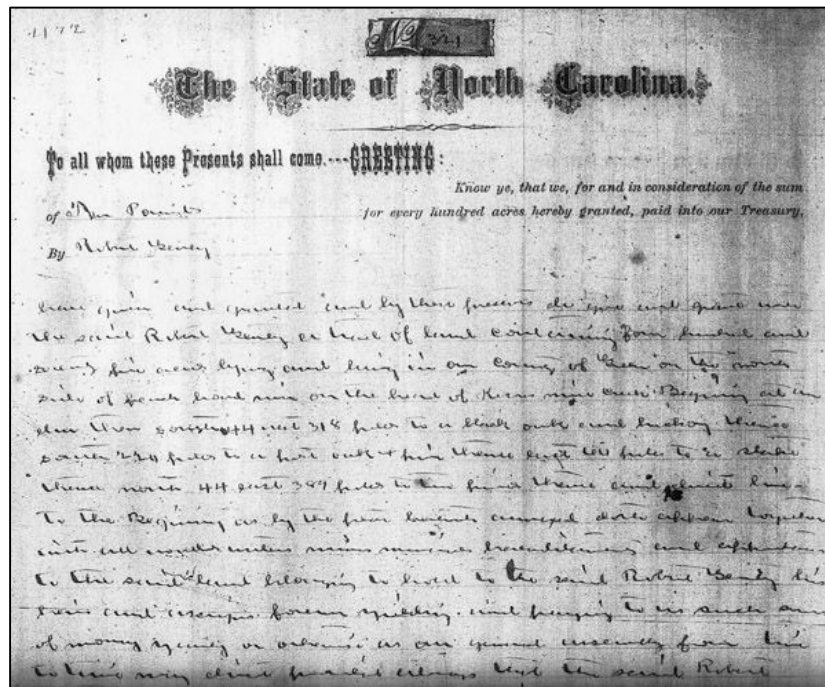 1172
No 321
The State of North Carolina.
To all whom these Presents shall come,---GREETING:
Know ye, that we, for and in consideration of the sum
of Ten Pounds
for every hundred acres hereby granted, paid into our Treasury,
By Robert
have given and granted and by these presents do give and grant unto
the said Robert a tract of land containing four hundred and
seventy five acres lying and being in our County of on the north
side of french broad on the head of Beginning at an
then south 44 west 318 poles to a black oak and hickory thence
south 220 poles to a post oak & pine thence east poles to a stake
thence north 44 east 389 poles to two pines thence a direct line
To the Beginning as by the plan hereunto annexed doth appear together
with all woods waters mines minerals hereditaments and appurtenances
to the said land belonging to hold to the said Robert his
heirs and assigns forever yielding and paying to us such sums
of money yearly or otherwise as our general assembly from time
to time may direct provided always that the said Robert